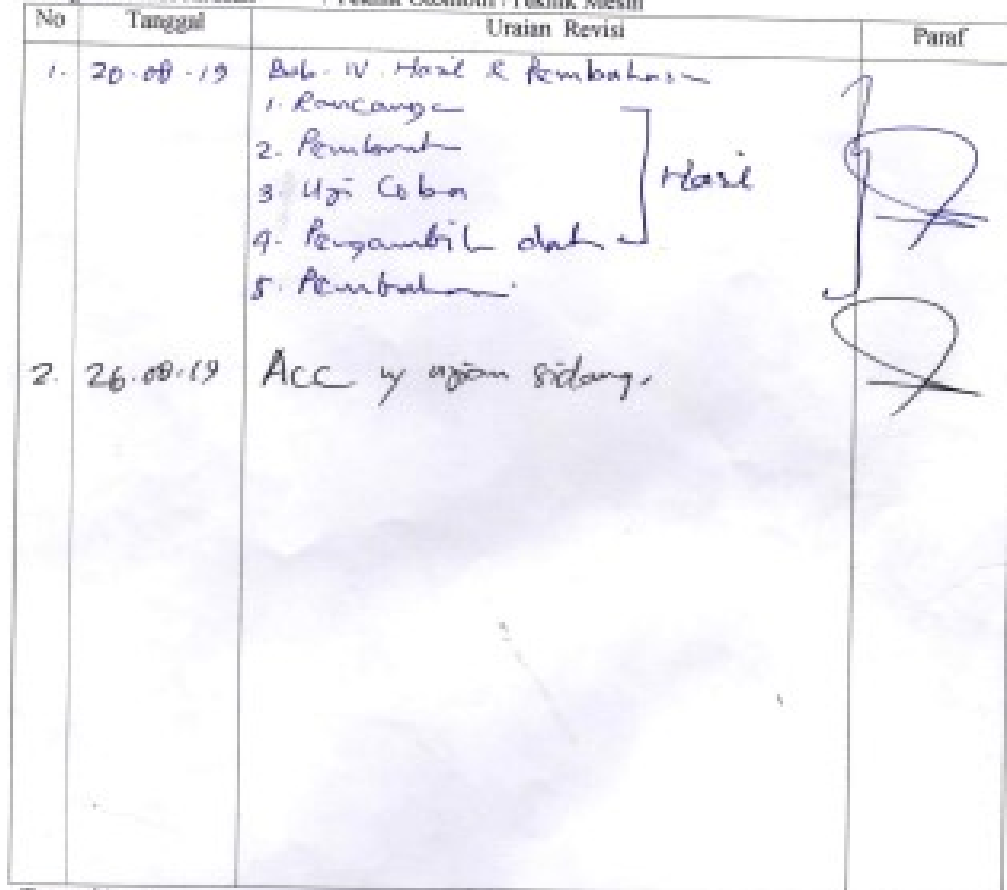 : Teknik Otomotif / Teknik Mesin
No Tanggal Uraian Revisi Paraf
1. 20-08-19 Bab-IV. Hasil & Pembahasan
1. Rancangan
2. Pembuatan
3. Uji Coba
Hasil
4. Pengambil data
5. Pembahasan
2. 26-08-19 Acc u/ ujian sidang,